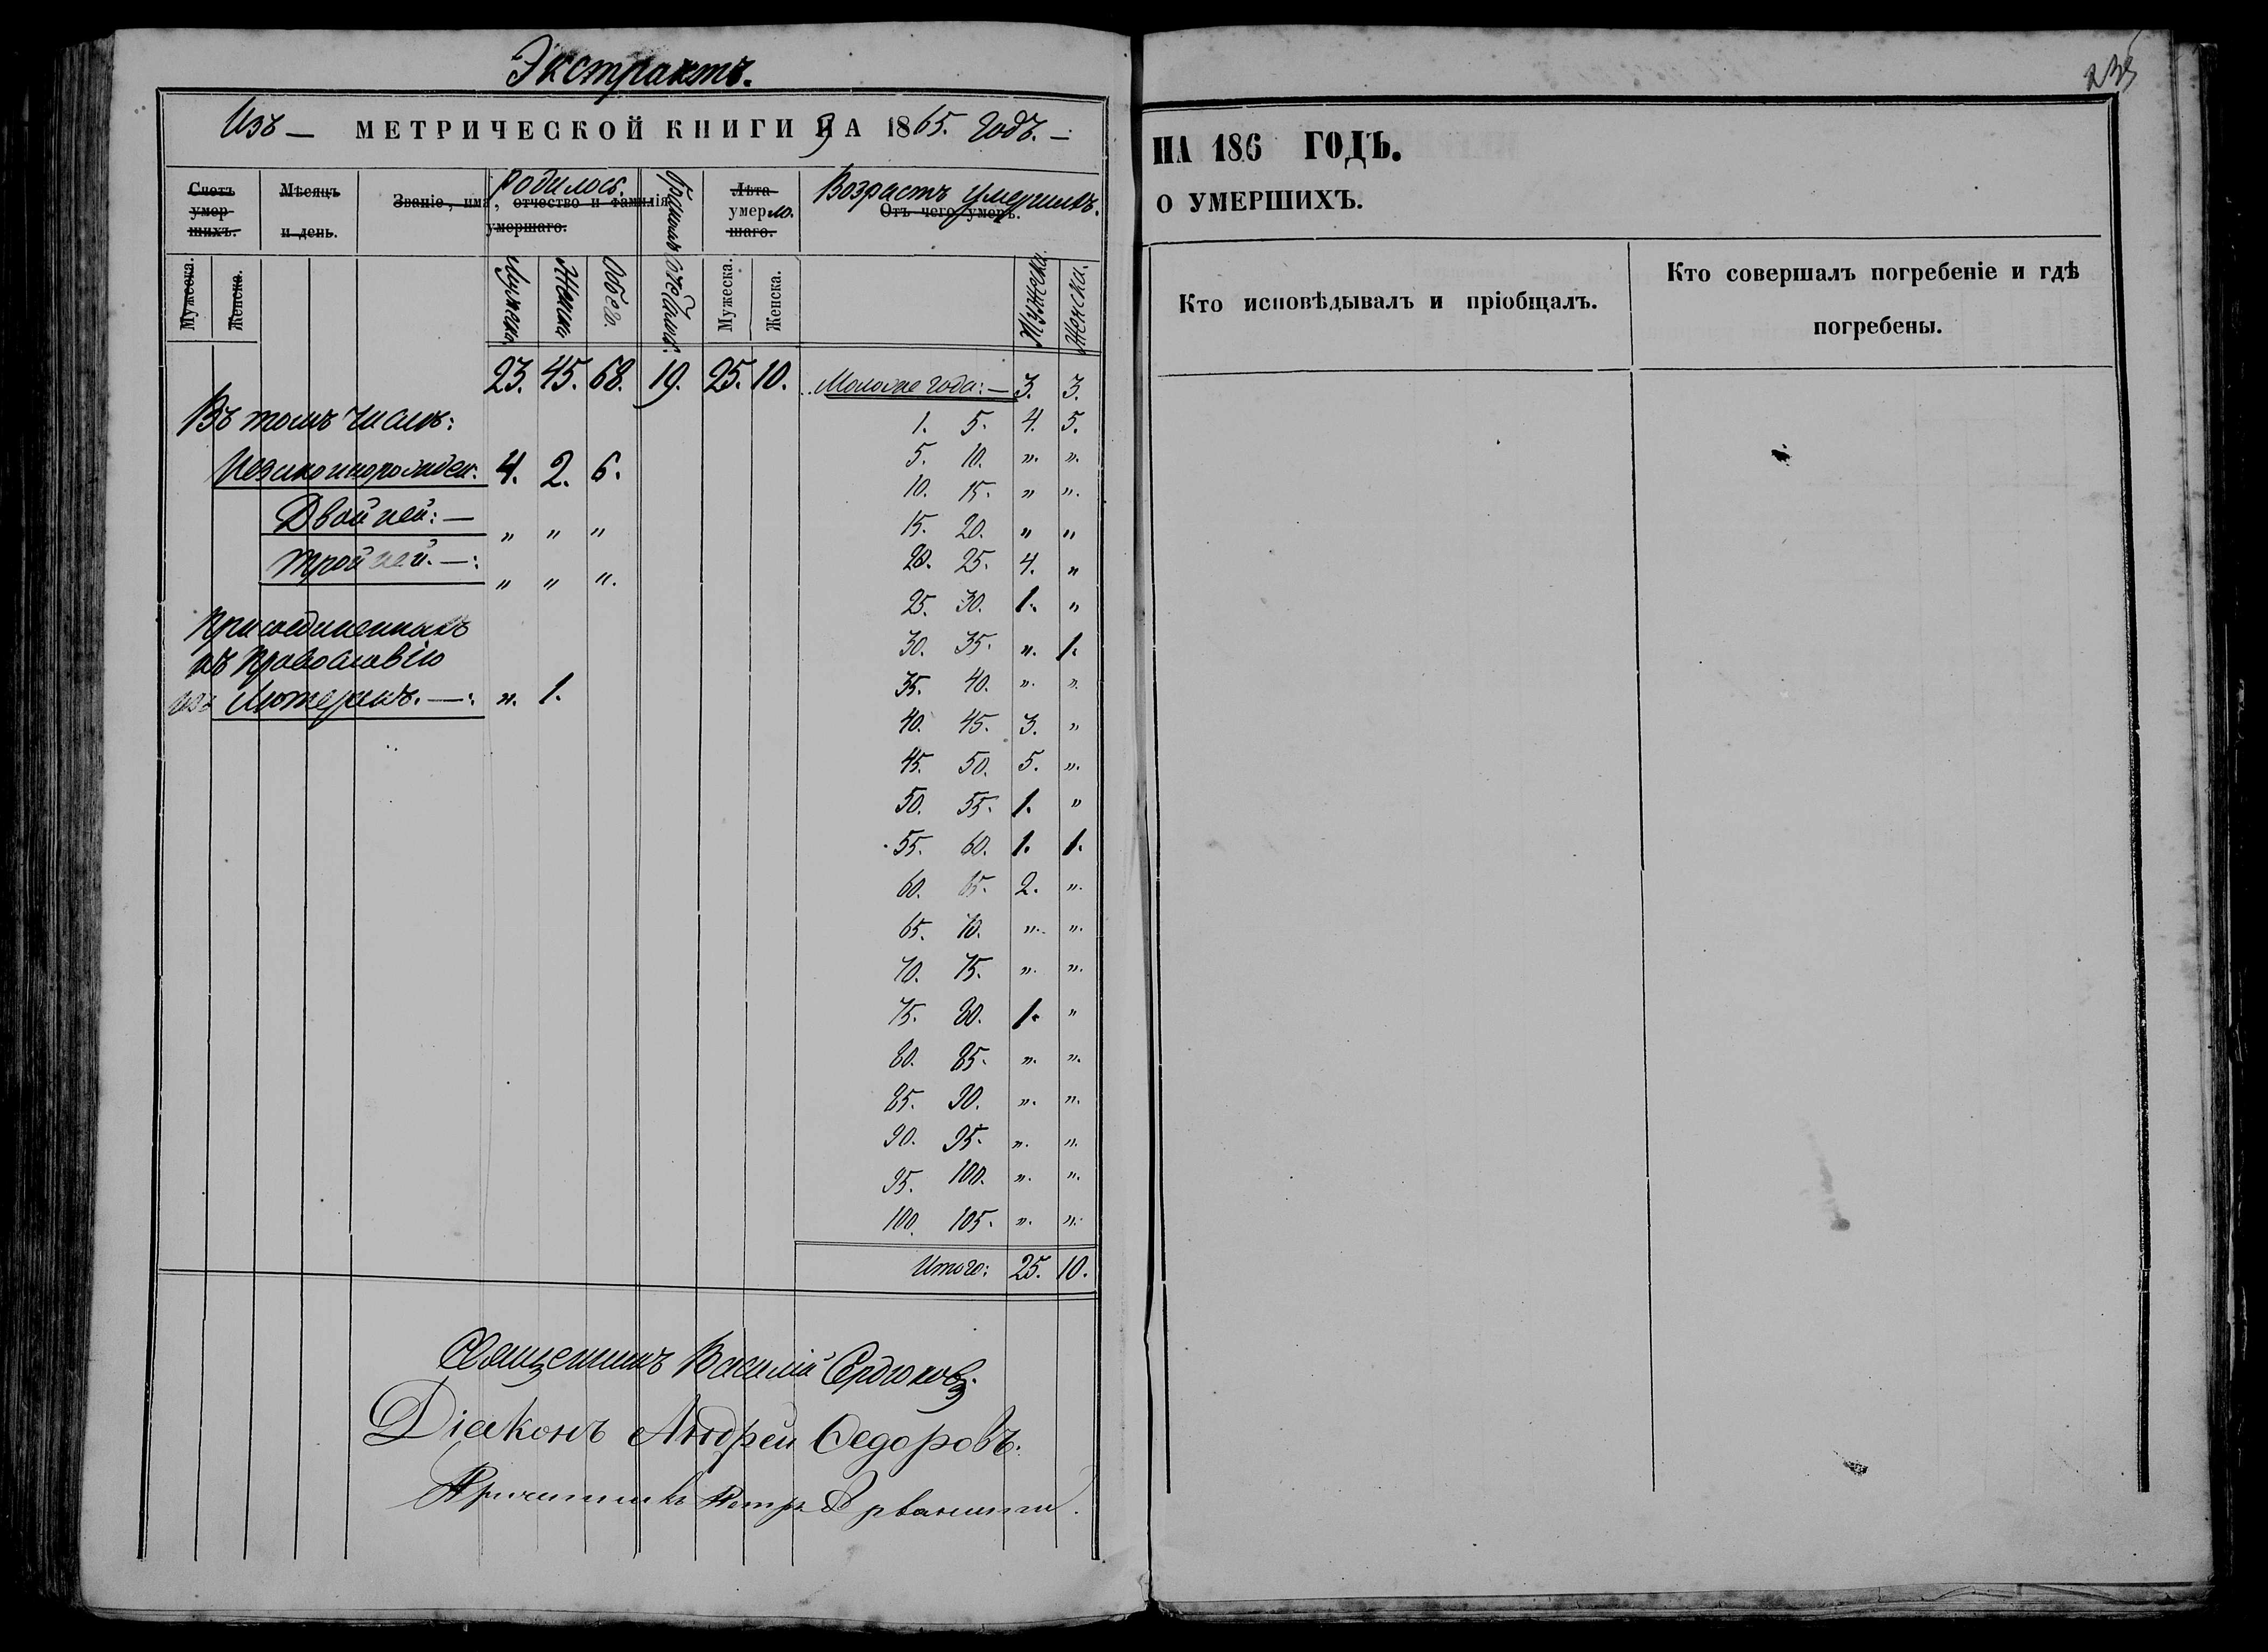 Экстрактъ.
Изъ — МЕТРИЧЕСКОЙ КНИГИ ЗА 1865. Годъ. —
Счетъ умершихъ. Мѣсяцъ и день. Званіе, имя, отчество и фамилія умершаго. Родилось. Браковъ Лѣта умершаго. умерло. Возрастъ умершихъ. Отъ чего умеръ.
Мужеска. Женска. Мужеска. Женска. Обоего. Мужеска. Женска. Мужеска. Женска.
23. 45. 68. 19. 25. 10. Моложе года: — 3. 3.
Въ томъ числѣ:
1. 5. 4. 5.
5. 10. „. „.
Незаконнорожден: 4. 2. 6.
10. 15. „ „.
Двойней: — „ „ „
15. 20. „ „
Тройней. —: „ „ „.
20. 25. 4. „
25. 30. 1. „
Присоединенныхъ
къ Православію
30. 35. „. 1.
изъ Лютеранъ. —: „. 1.
35. 40. „. „.
40. 45. 3. „
45. 50. 5. „.
50. 55. 1. „
55. 60. 1. 1.
60. 65. 2. „.
65. 70. „. „.
70. 75. „. „.
75. 80. 1. „
80. 85. „. „.
85. 90. „. „.
90. 95. „. „.
95. 100. „. „.
100. 105. „. „.
Итого: 25. 10.
Священникъ Василій Сердюковъ.
Діаконъ Андрей Ѳедоровъ.
Причетникъ Петръ
235
НА 186 ГОДЪ.
О УМЕРШИХЪ.
Кто исповѣдывалъ и пріобщалъ.
Кто совершалъ погребеніе и гдѣ
погребены.